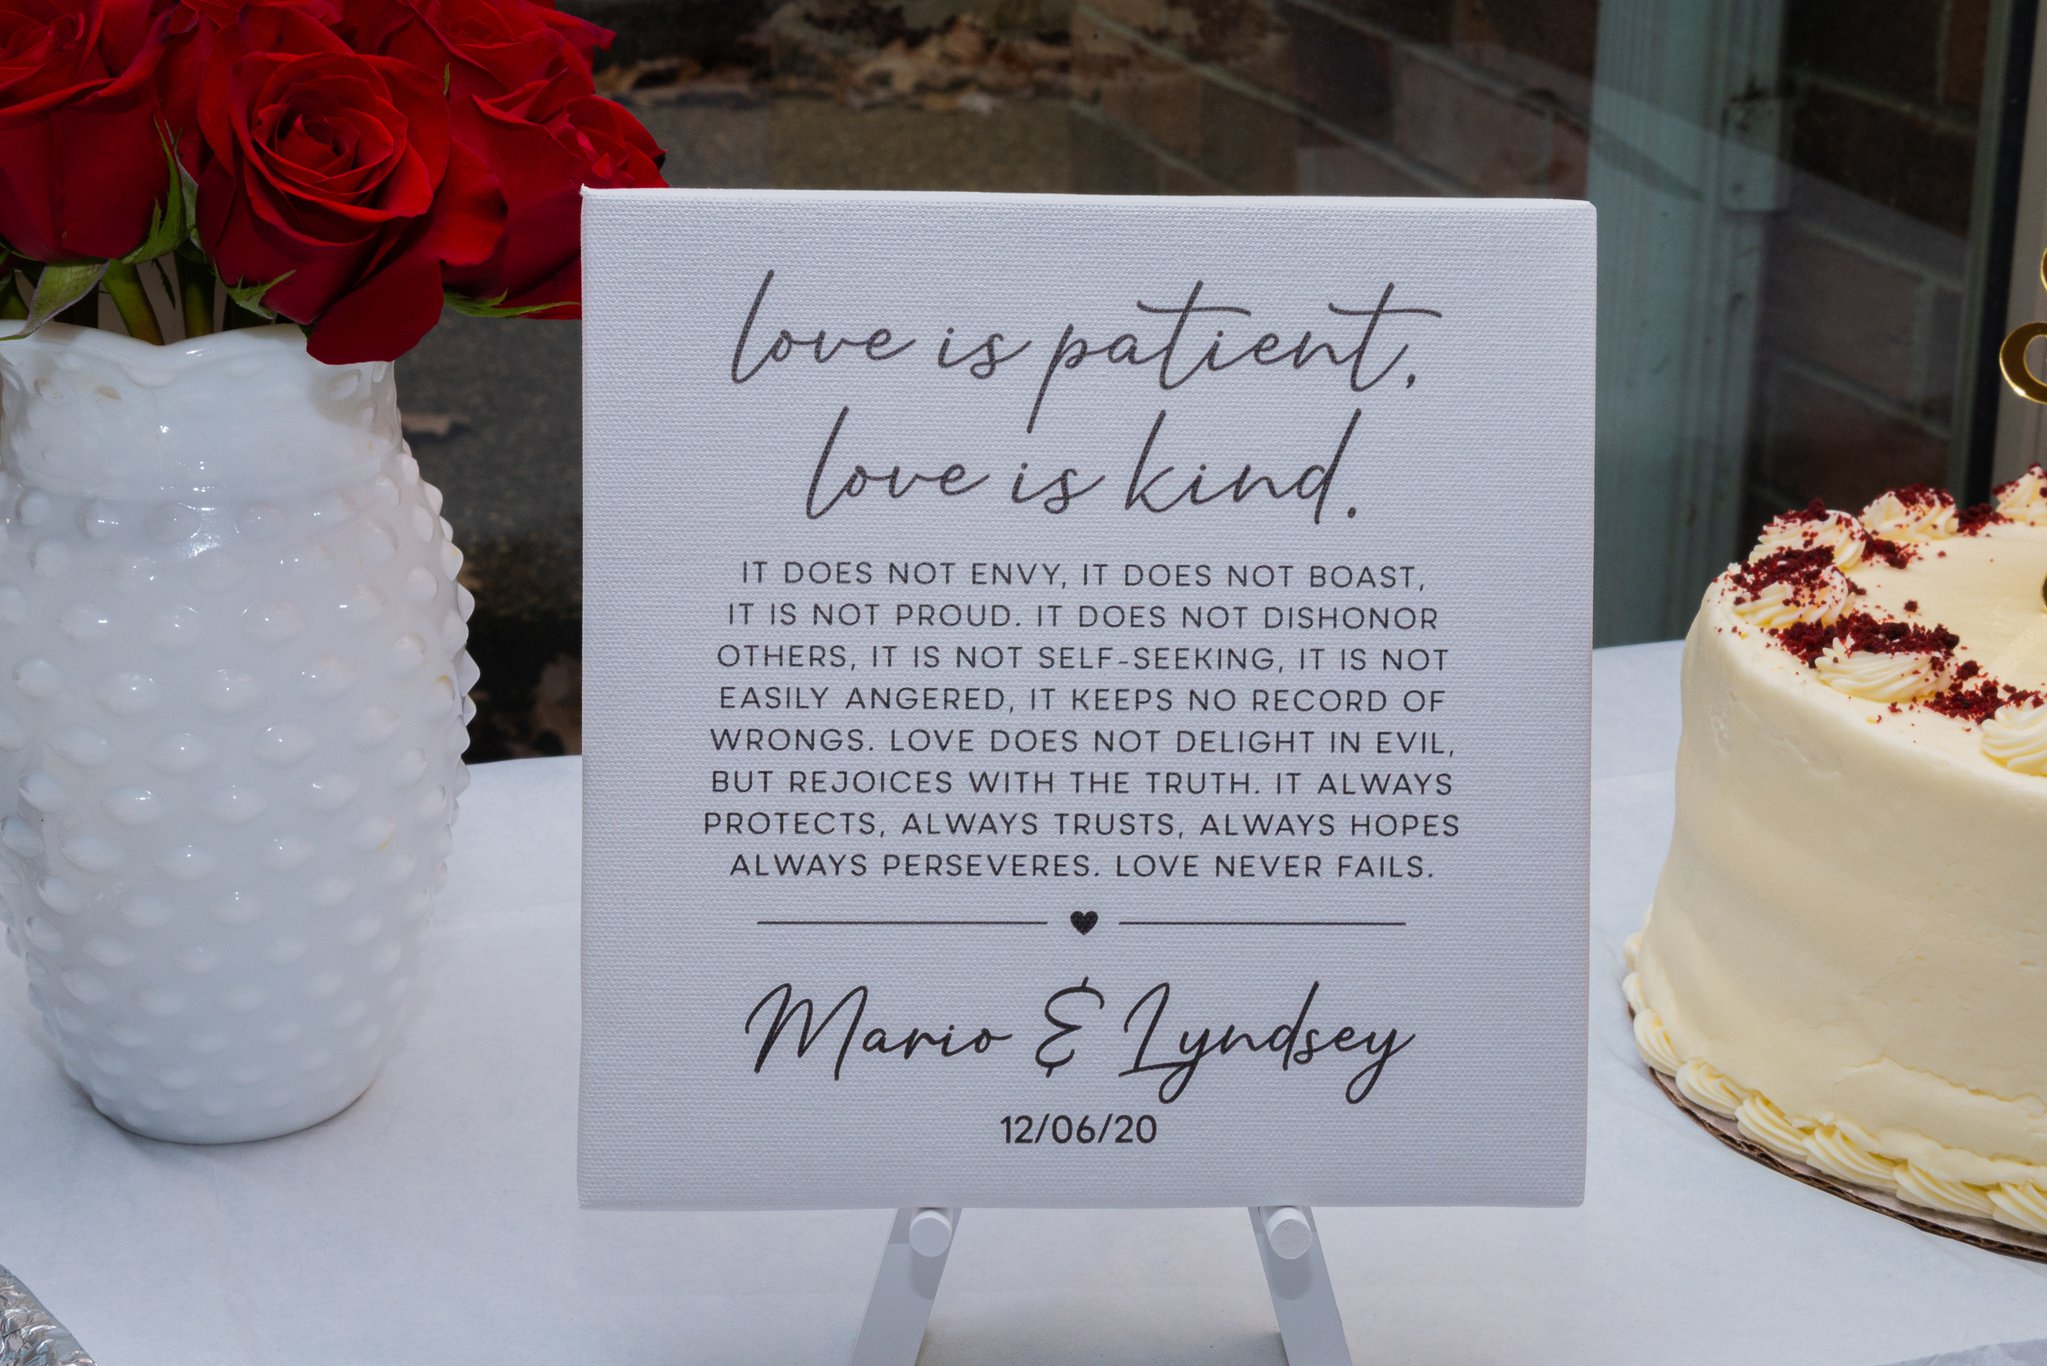 love is patient,
love is kind.
IT DOES NOT ENVY, IT DOES NOT BOAST,
IT IS NOT PROUD. IT DOES NOT DISHONOR
OTHERS, IT IS NOT SELF-SEEKING, IT IS NOT
EASILY ANGERED, IT KEEPS NO RECORD OF
WRONGS. LOVE DOES NOT DELIGHT IN EVIL,
BUT REJOICES WITH THE TRUTH. IT ALWAYS
PROTECTS, ALWAYS TRUSTS, ALWAYS HOPES
ALWAYS PERSEVERES. LOVE NEVER FAILS.
Mario & Lyndsey
12/06/20